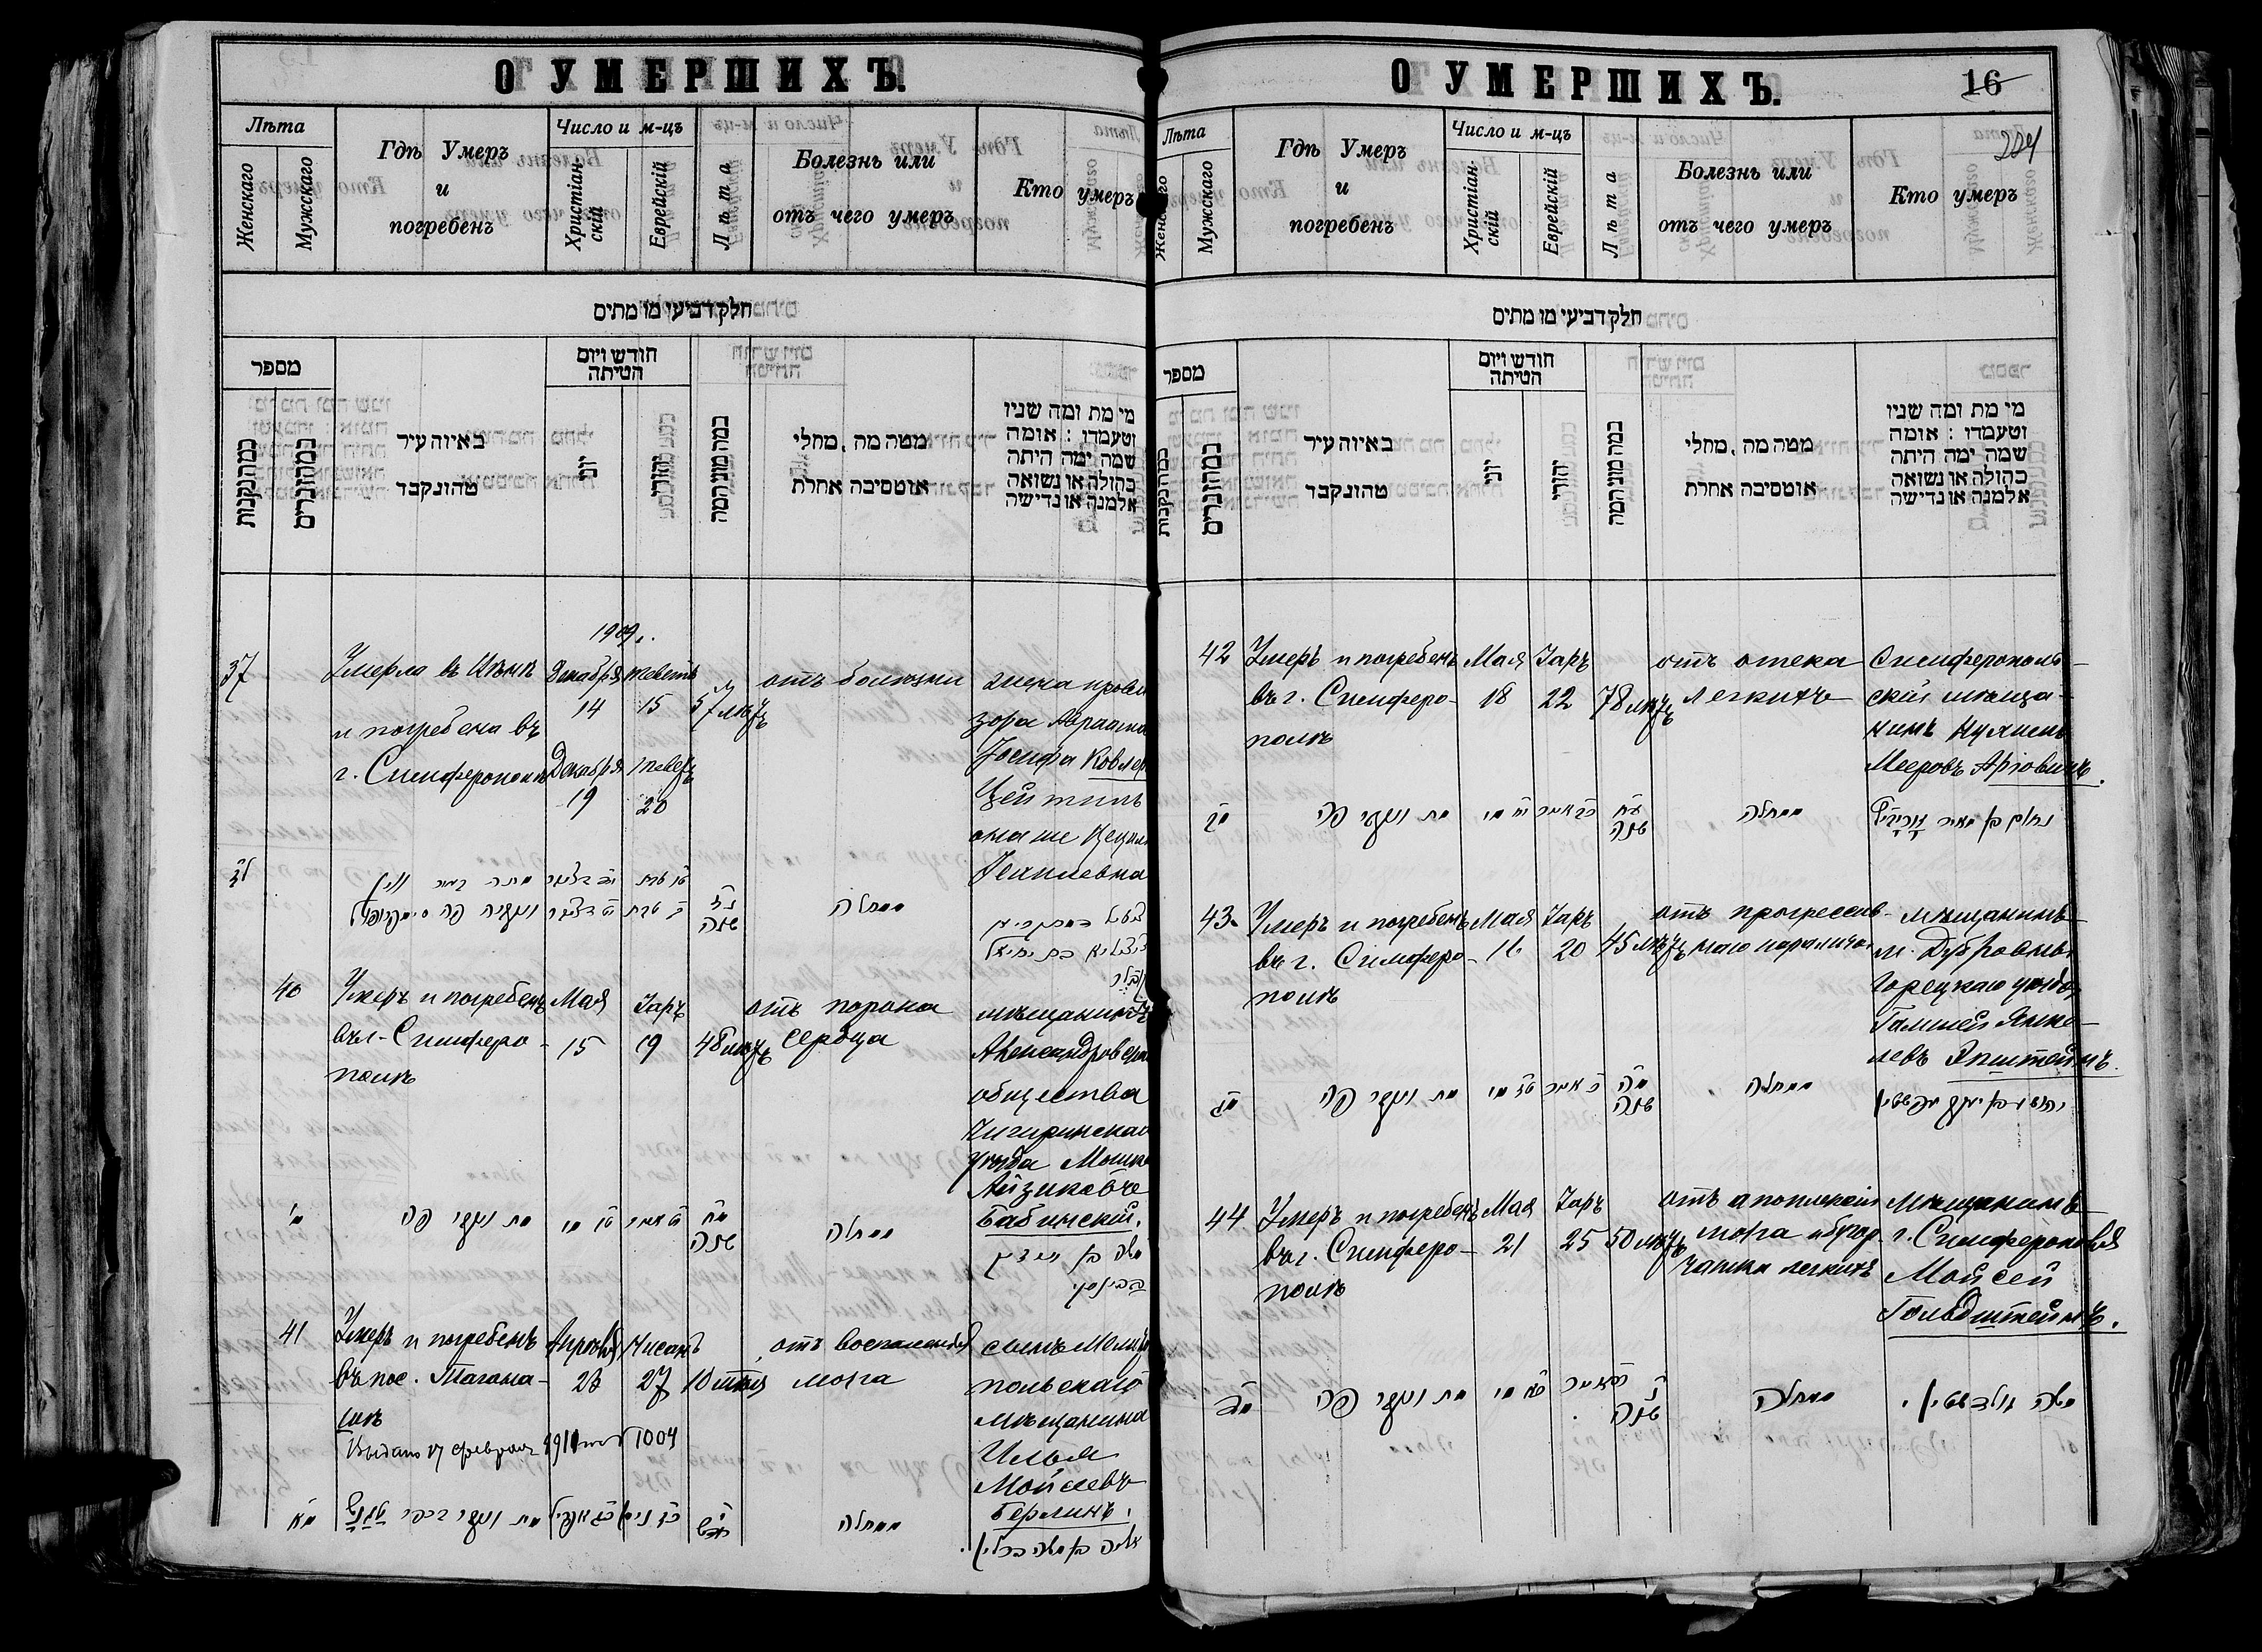 О УМЕРШИХЪ.
Лѣта
Женскаго
Мужскаго
Гдѣ Умеръ
и
погребенъ
Число и м-цъ
Христіан-
скій
Еврейскій
Лѣта
Болезнь или
отъ чего умеръ
Кто умеръ
חלק דביעי מו מתים
מספר
כמה נקבות
כמה זכרים
באיזה עיר
מהו נקבר
חודש ויום
המיתה
יוני
יהודי
כמה שני חסה
מטה מה, מחלי
אוטסיבה אחרת
מי מת ומה שניו
וטעמדו : אומה
שמה ימה היתה
בהולה או נשואה
אלמנה או גדישה
1909 г.
37
Умерла въ
и погребена въ
г. Симферополѣ
Декабря
14
Декабря
19
Теветъ
15
Теветъ
20
57 лѣтъ
отъ болезни
жена прови
зора Авраама
Іосифа Ковлер
Цейтлинъ
она же Цецилі
Іехилевна
לז
מחלה
40
Умеръ и погребенъ
въ г. Симферо-
полѣ
Мая
15
Іаръ
19
48 лѣтъ
отъ порока
сердца
мѣщанинъ
Александровска
общества
Чигиринскаго
уѣзда Мошко
Айзиковъ
Бабинскій.
מ
מת ונקבר פה
מח
שנה
מחלה
41
Умеръ и погребенъ
въ пос. Тагана-
шѣ
Апрѣля
23
Нисанъ
27
10 мѣсяц
отъ воспаленія
мозга
сынъ Мелито
польскаго
мѣщанина
Илья
Мойсеевъ
Берлинъ.
Выдано 17 февраля 1911 № 1004
מא
מחלה
אליה בן משה ברלין
О УМЕРШИХЪ.
16
204
Лѣта
Женскаго
Мужскаго
Гдѣ Умеръ
и
погребенъ
Число и м-цъ
Христіан-
скій
Еврейскій
Лѣта
Болезнь или
отъ чего умеръ
Кто умеръ
חלק דביעי מו מתים
מספר
כמה נקבות
כמה זכרים
באיזה עיר
מהו נקבר
חודש ויום
המיתה
יוני
יהודי
כמה שני חסה
מטה מה, מחלי
אוטסיבה אחרת
מי מת ומה שניו
וטעמדו : אומה
שמה ימה היתה
בהולה או נשואה
אלמנה או גדישה
42
Умеръ и погребенъ
въ г. Симферо-
полѣ
Мая
18
Іаръ
22
78 лѣтъ
отъ отека
легкихъ
Симферополь-
скій мѣща-
нинъ
Мееровъ Арговичъ.
מב
מת ונקבר פה
עח
שנה
מחלה
43
Умеръ и погребенъ
въ г. Симферо-
полѣ
Мая
16
Іаръ
20
45 лѣтъ
отъ прогрессив-
наго паралича
мѣщанинъ
м. Дубровны
Горецкаго уѣзда
Янке-
левъ Эпштейнъ.
מג
מת ונקבר פה
מה
שנה
מחלה
44
Умеръ и погребенъ
въ г. Симферо-
полѣ
Мая
21
Іаръ
25
50 лѣтъ
отъ апоплексіи
мозга и бугор
чатки легкихъ
Мѣщанинъ
г. Симферополя
Мойсей
Гольдштейнъ.
מד
מת ונקבר פה
נ
שנה
מחלה
משה גולדשטיין